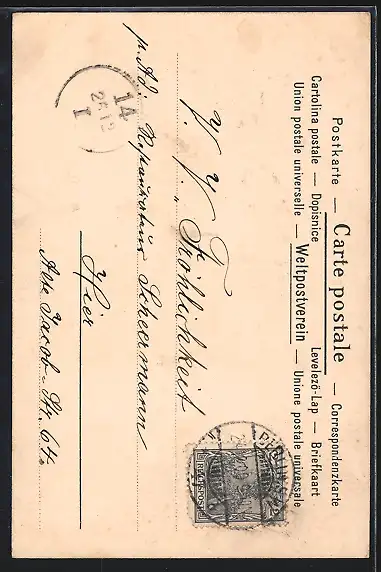 Postkarte — Carte postale — Correspondenzkarte
Cartolina postale — Dopisnice Levelező-Lap — Briefkaart
Union postale universelle — Weltpostverein — Unione postale universale
V. V. „Fröhlichkeit
p. Ad. Restaurateur Scheermann
Hier
Alte Jacob-Str. 64.
14
26.12
1
BERLIN
REICHSPOST